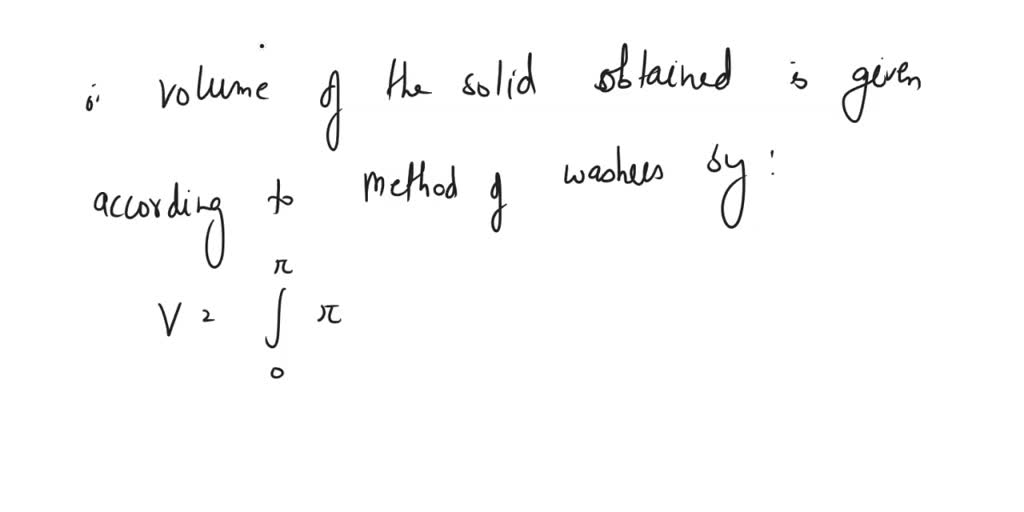 ∴ volume of the solid obtained is given
according to method of washers by :
V = ∫₀^π π